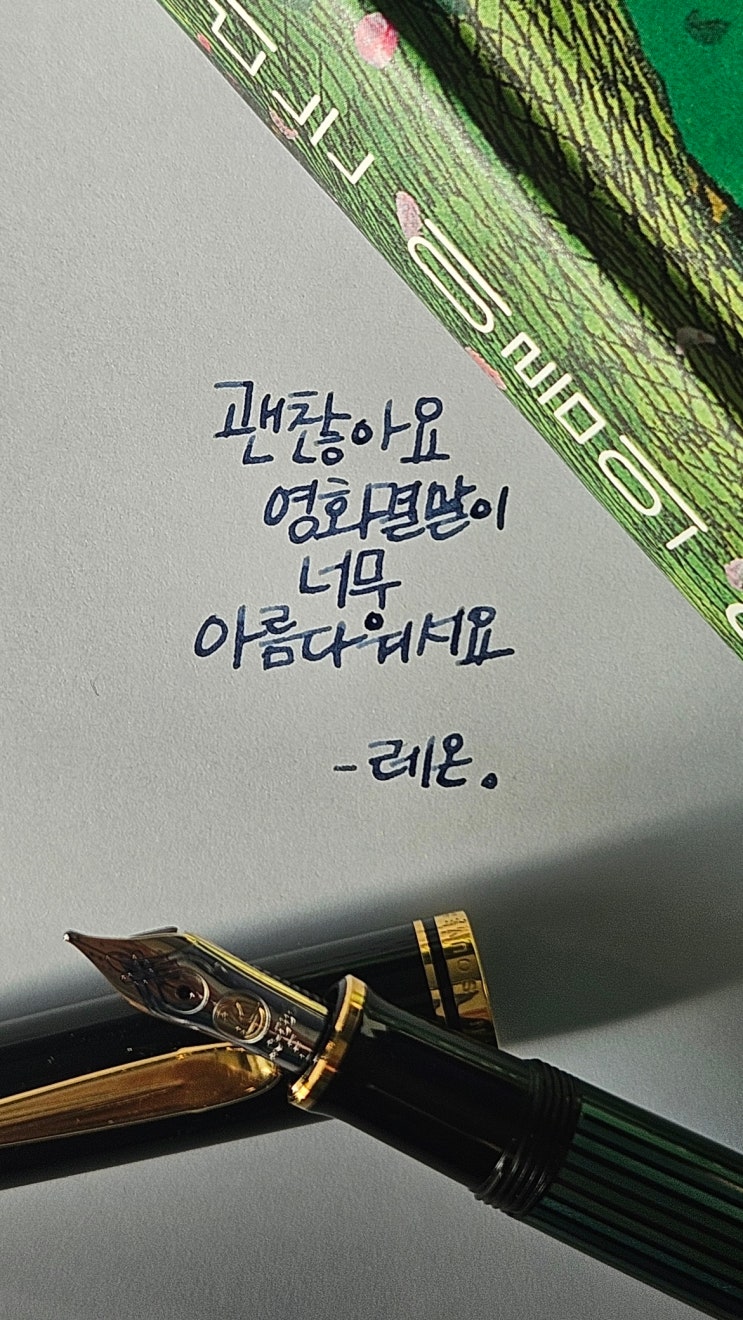 괜찮아요
영화결말이
너무
아름다워서요
-레온.